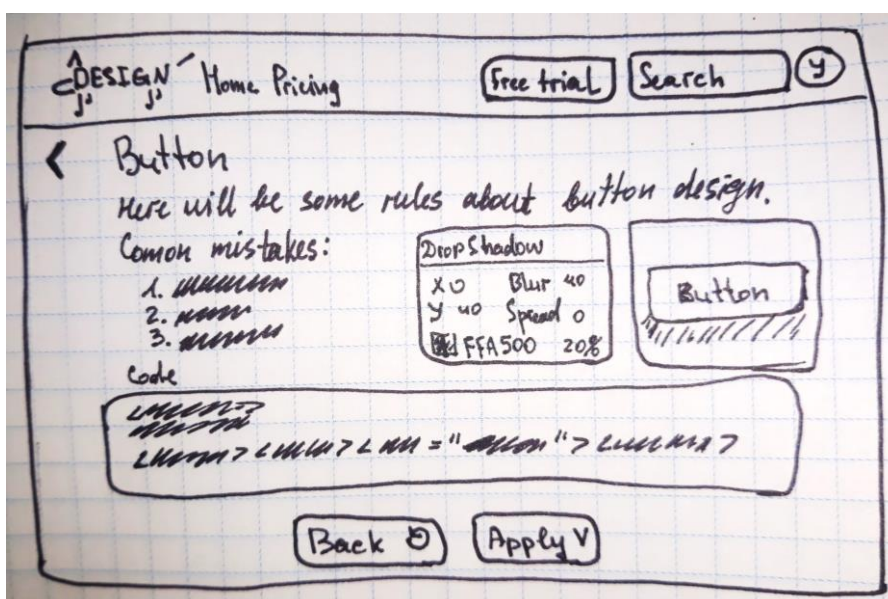 DESIGN Home Pricing Free trial Search y
Button
Here will be some rules about button design.
Comon mistakes:
1.
2.
3.
Drop Shadow
X 0 Blur 40
y 40 Spread 0
FFA500 20%
Button
Code
Back
Apply